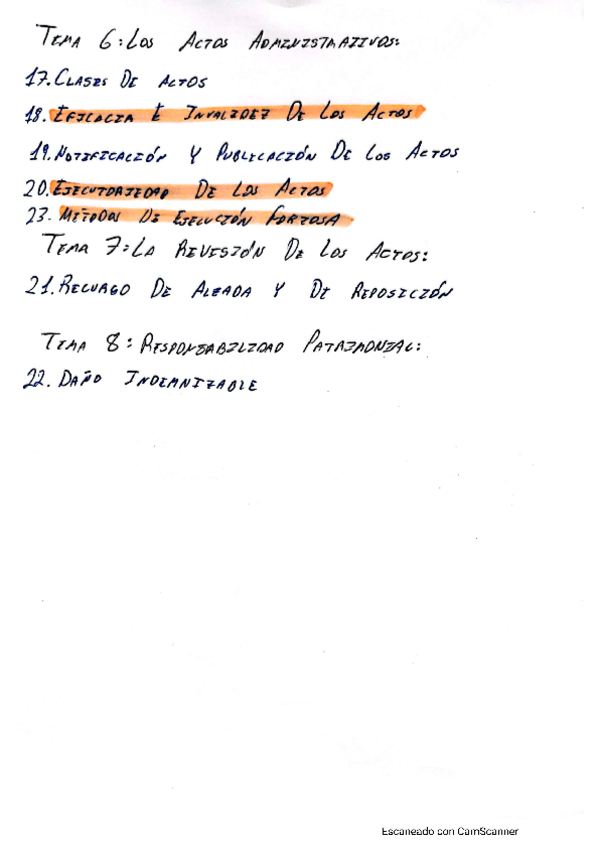 TEMA 6: LOS ACTOS ADMINISTRATIVOS:
17. CLASES DE ACTOS
18. EFICACIA E INVALIDEZ DE LOS ACTOS
19. NOTIFICACIÓN Y PUBLICACIÓN DE LOS ACTOS
20. EJECUTORIEDAD DE LOS ACTOS
23. METODOS DE EJECUCIÓN FORZOSA
TEMA 7: LA REVISIÓN DE LOS ACTOS:
21. RECURSO DE ALZADA Y DE REPOSICIÓN
TEMA 8: RESPONSABILIDAD PATRIMONIAL:
22. DAÑO INDEMNIZABLE
Escaneado con CamScanner